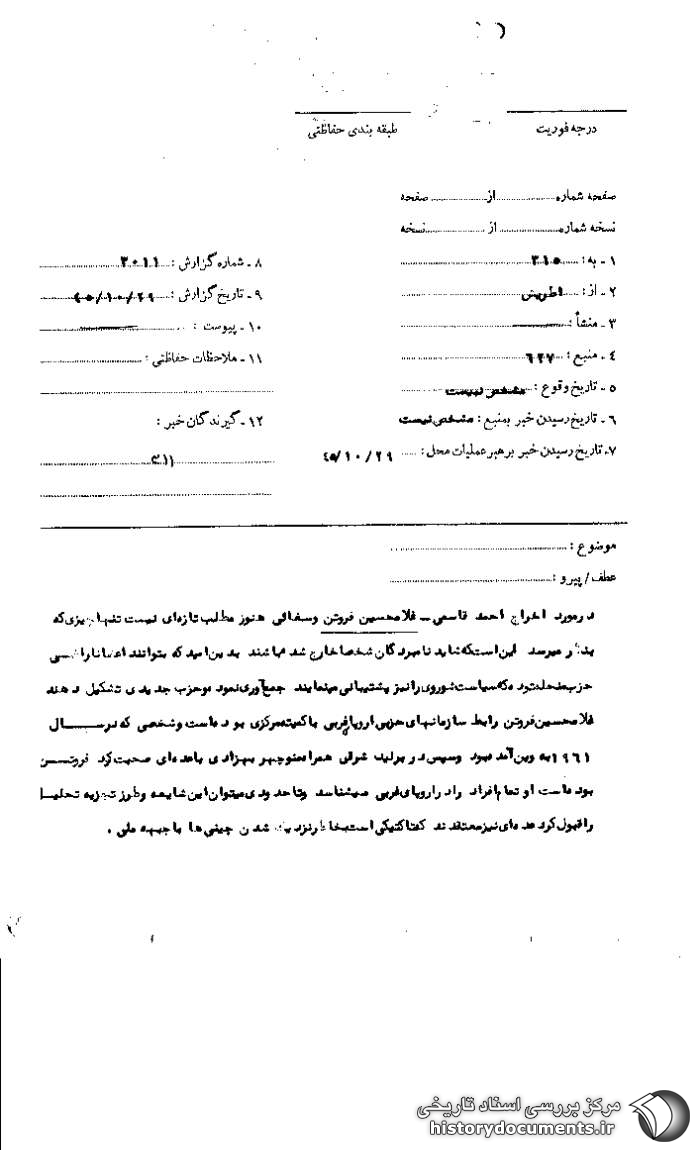 درجه فوریت
طبقه بندی حفاظتی
صفحه شماره از صفحه
نسخه شماره از نسخه
۱ ـ به : ۳۱۵
۲ ـ از : اطریش
۳ ـ منشأ :
۴ ـ منبع : ۶۲۷
۵ ـ تاریخ وقوع : مشخص نیست
۶ ـ تاریخ رسیدن خبر بمنبع : مشخص نیست
۷ـ تاریخ رسیدن خبر برهبر عملیات محل : ۴۵/۱۰/۲۹
۸ ـ شماره گزارش : ۳۰۱۱
۹ ـ تاریخ گزارش : ۴۵/۱۰/۲۹
۱۰ ـ پیوست :
۱۱ ـ ملاحظات حفاظتی :
۱۲ ـ گیرندگان خبر :
موضوع :
عطف / پیرو :
در مورد اخراج احمد قاسمی ـ غلامحسین فروتن و سغائی هنوز مطلب تازه‌ای نیست تنها چیزی که
بنظر میرسد این استکه شاید نامبردگان شخصا خارج شده باشند بدین امید که بتوانند اعضا ناراضی
حزب منحله توده که سیاست شوروی را نیز پشتیبانی مینمایند جمع آوری نموده و حزب جدیدی تشکیل دهند
غلامحسین فروتن رابط سازمانهای حزبی اروپا غربی با کمیته مرکزی بوده است و شخصی که در ســـال
۱۹۶۱ به وین آمده بود و سپس در برلیــن شرقی همراه منوچهر بهزادی با عده‌ای صحبت کرد فروتـــن
بوده است او تمام افراد را در اروپای غربی میشناسد و تا حدودی میتوان این شایعه و طرز تجزیه تحلیل
را قبول کرد عده‌ای نیز معتقدند که تاکتیکی است بخاطر نزدیک شدن چینی ها با جبهه ملی .
مرکز بررسی اسناد تاریخی
historydocuments.ir